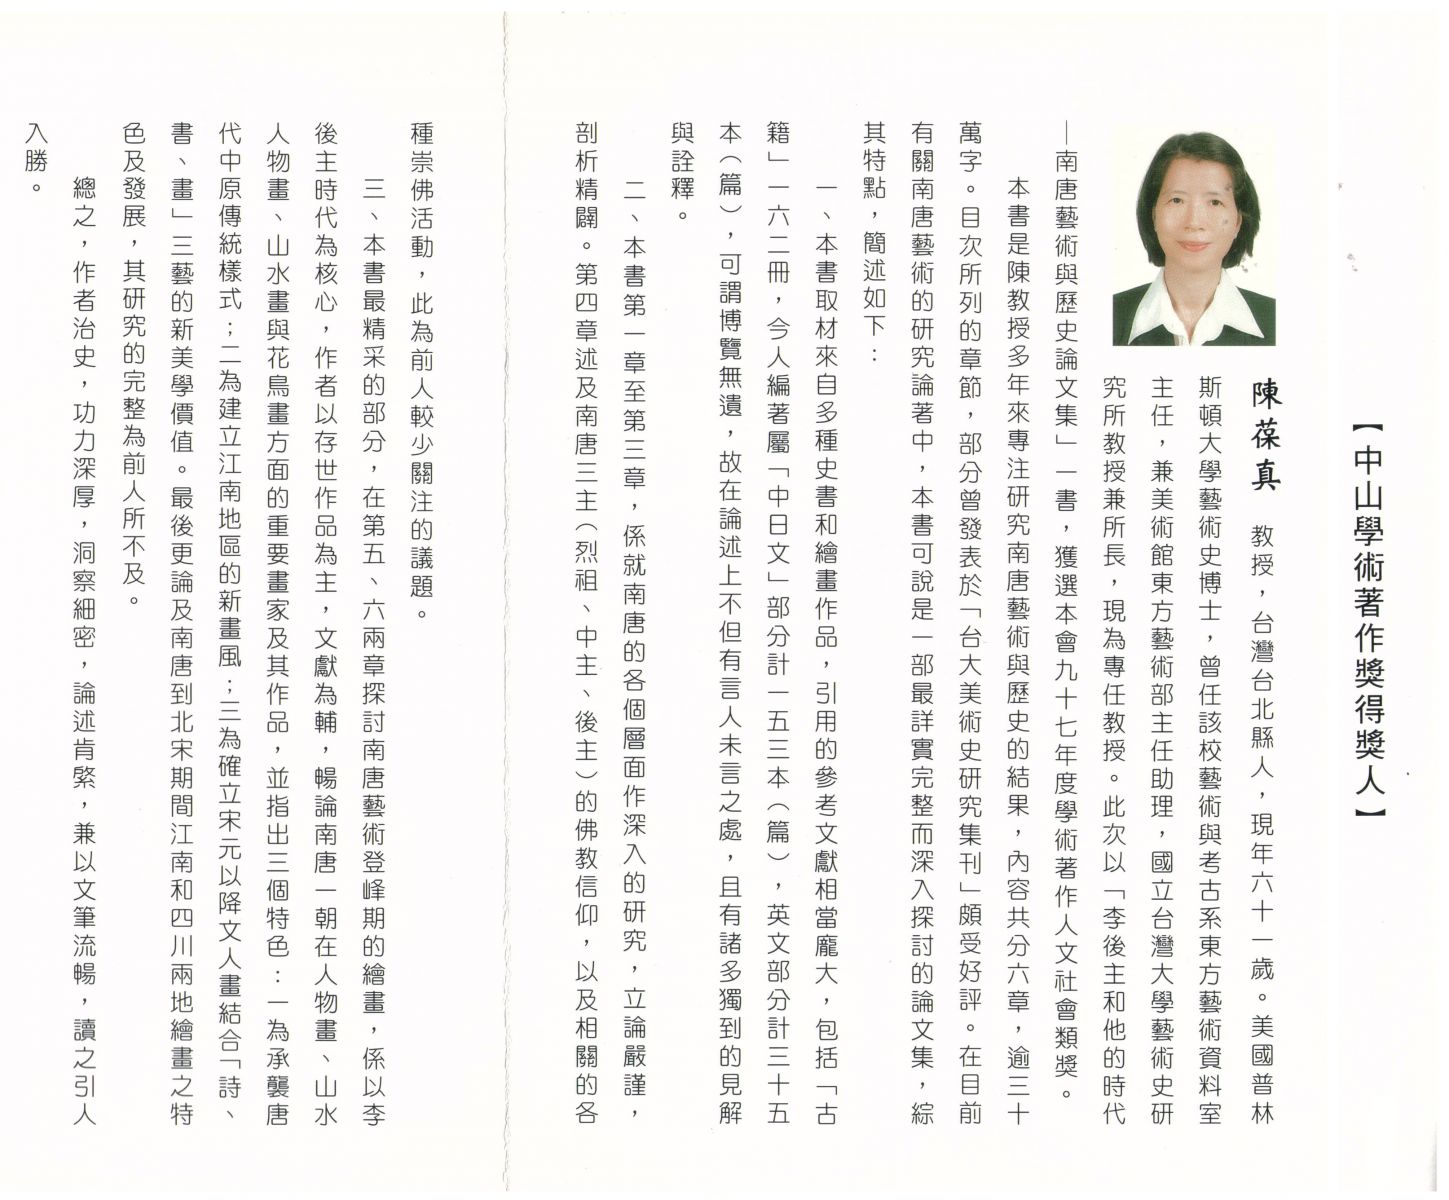 【中山學術著作獎得獎人】
陳葆真　教授，台灣台北縣人，現年六十一歲。美國普林
斯頓大學藝術史博士，曾任該校藝術與考古系東方藝術資料室
主任，兼美術館東方藝術部主任助理，國立台灣大學藝術史研
究所教授兼所長，現為專任教授。此次以「李後主和他的時代
—南唐藝術與歷史論文集」一書，獲選本會九十七年度學術著作人文社會類獎。
本書是陳教授多年來專注研究南唐藝術與歷史的結果，內容共分六章，逾三十
萬字。目次所列的章節，部分曾發表於「台大美術史研究集刊」頗受好評。在目前
有關南唐藝術的研究論著中，本書可說是一部最詳實完整而深入探討的論文集，綜
其特點，簡述如下：
一、本書取材來自多種史書和繪畫作品，引用的參考文獻相當龐大，包括「古
籍」一六二冊，今人編著屬「中日文」部分計一五三本（篇），英文部分計三十五
本（篇），可謂博覽無遺，故在論述上不但有言人未言之處，且有諸多獨到的見解
與詮釋。
二、本書第一章至第三章，係就南唐的各個層面作深入的研究，立論嚴謹，
剖析精闢。第四章述及南唐三主（烈祖、中主、後主）的佛教信仰，以及相關的各
種崇佛活動，此為前人較少關注的議題。
三、本書最精采的部分，在第五、六兩章探討南唐藝術登峰期的繪畫，係以李
後主時代為核心，作者以存世作品為主，文獻為輔，暢論南唐一朝在人物畫、山水
人物畫、山水畫與花鳥畫方面的重要畫家及其作品，並指出三個特色：一為承襲唐
代中原傳統樣式；二為建立江南地區的新畫風；三為確立宋元以降文人畫結合「詩、
書、畫」三藝的新美學價值。最後更論及南唐到北宋期間江南和四川兩地繪畫之特
色及發展，其研究的完整為前人所不及。
總之，作者治史，功力深厚，洞察細密，論述肯綮，兼以文筆流暢，讀之引人
入勝。